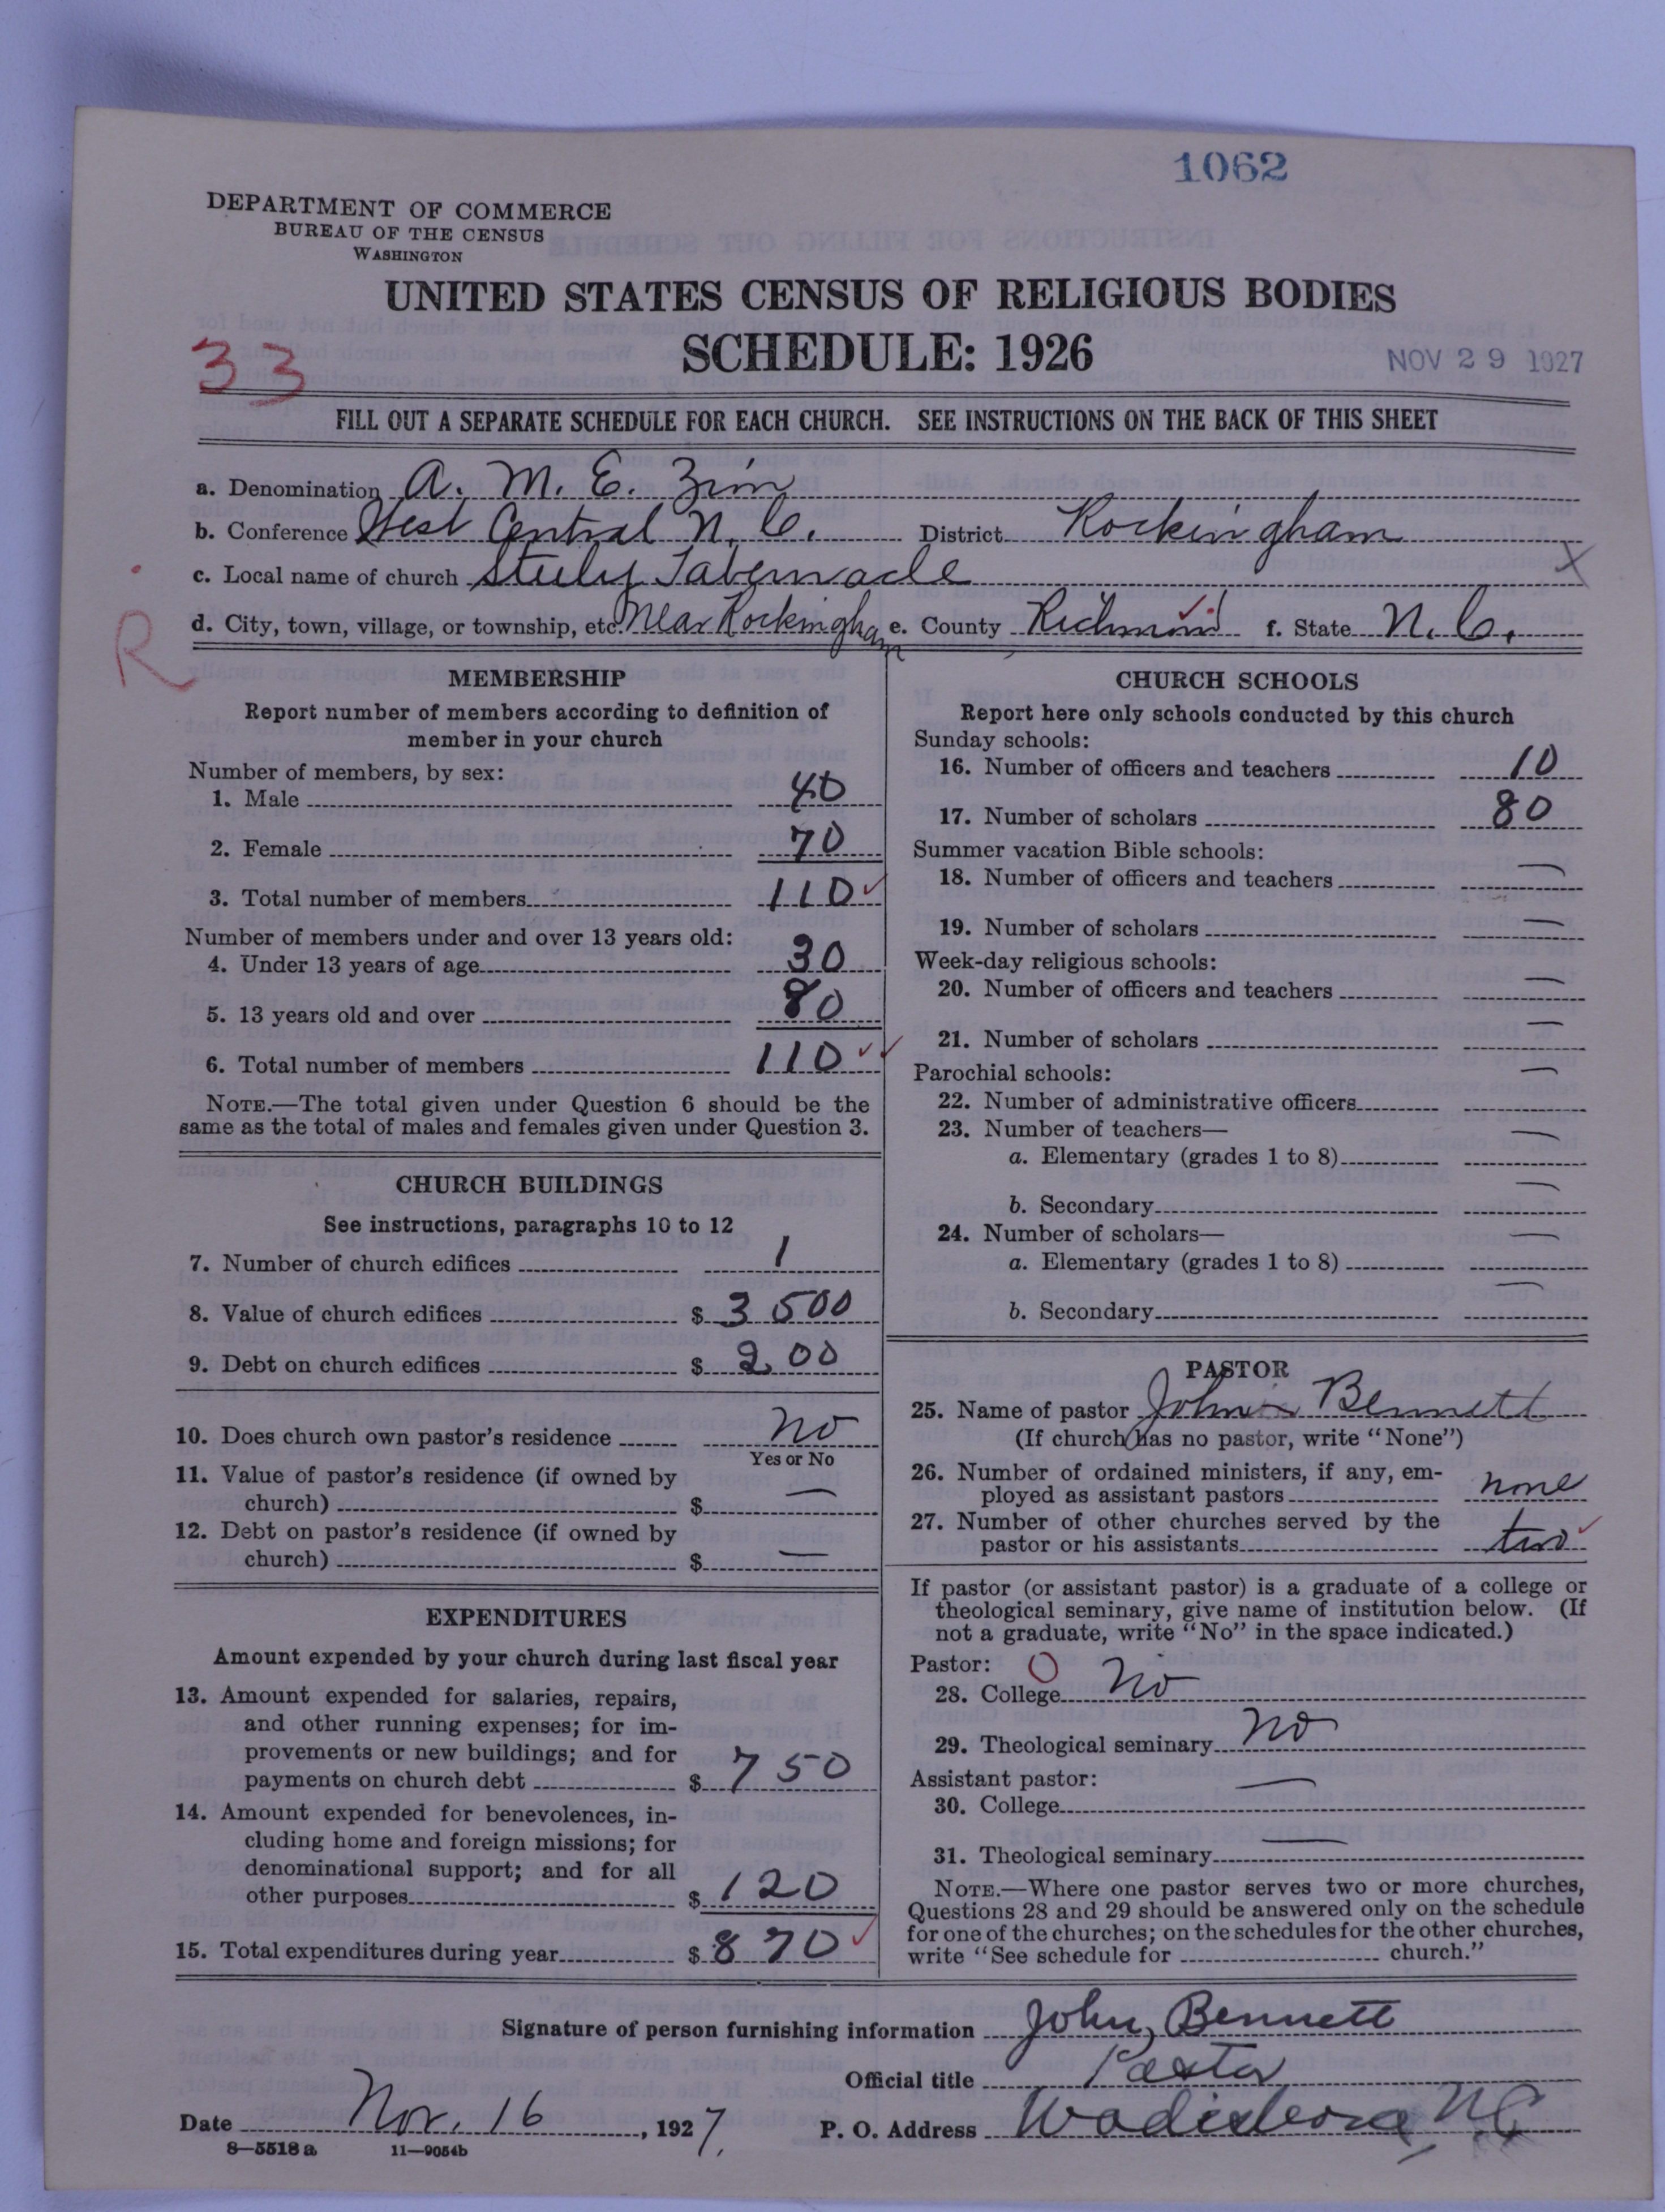 1062
DEPARTMENT OF COMMERCE
BUREAU OF THE CENSUS
WASHINGTON
UNITED STATES CENSUS OF RELIGIOUS BODIES
SCHEDULE: 1926
33
NOV 29 1927
FILL OUT A SEPARATE SCHEDULE FOR EACH CHURCH. SEE INSTRUCTIONS ON THE BACK OF THIS SHEET
a. Denomination A. M. E. Zion
b. Conference West Central N. C. District Rockingham
c. Local name of church Tabernacle
X
d. City, town, village, or township, etc. Near Rockingham e. County Richmond f. State N. C.
R
MEMBERSHIP
Report number of members according to definition of
member in your church
Number of members, by sex:
1. Male 40
2. Female 70
3. Total number of members 110
Number of members under and over 13 years old:
4. Under 13 years of age 30
5. 13 years old and over 80
6. Total number of members 110
NOTE.—The total given under Question 6 should be the
same as the total of males and females given under Question 3.
CHURCH BUILDINGS
See instructions, paragraphs 10 to 12
7. Number of church edifices 1
8. Value of church edifices $ 3 500
9. Debt on church edifices $ 200
10. Does church own pastor's residence No
Yes or No
11. Value of pastor's residence (if owned by
church) $ —
12. Debt on pastor's residence (if owned by
church) $ —
EXPENDITURES
Amount expended by your church during last fiscal year
13. Amount expended for salaries, repairs,
and other running expenses; for im-
provements or new buildings; and for
payments on church debt $ 750
14. Amount expended for benevolences, in-
cluding home and foreign missions; for
denominational support; and for all
other purposes $ 120
15. Total expenditures during year $ 870
CHURCH SCHOOLS
Report here only schools conducted by this church
Sunday schools:
16. Number of officers and teachers 10
17. Number of scholars 80
Summer vacation Bible schools:
18. Number of officers and teachers —
19. Number of scholars —
Week-day religious schools:
20. Number of officers and teachers —
21. Number of scholars —
Parochial schools:
22. Number of administrative officers —
23. Number of teachers—
a. Elementary (grades 1 to 8) —
b. Secondary —
24. Number of scholars—
a. Elementary (grades 1 to 8) —
b. Secondary —
PASTOR
25. Name of pastor John Bennett
(If church has no pastor, write "None")
26. Number of ordained ministers, if any, em-
ployed as assistant pastors none
27. Number of other churches served by the
pastor or his assistants two
If pastor (or assistant pastor) is a graduate of a college or
theological seminary, give name of institution below. (If
not a graduate, write "No" in the space indicated.)
Pastor: O
28. College No
29. Theological seminary No
Assistant pastor:
30. College —
31. Theological seminary —
NOTE.—Where one pastor serves two or more churches,
Questions 28 and 29 should be answered only on the schedule
for one of the churches; on the schedules for the other churches,
write "See schedule for church."
Signature of person furnishing information John Bennett
Official title Pastor
Date Nov. 16, 1927. P. O. Address Wadesboro, N C
8—5518 a 11—9054b